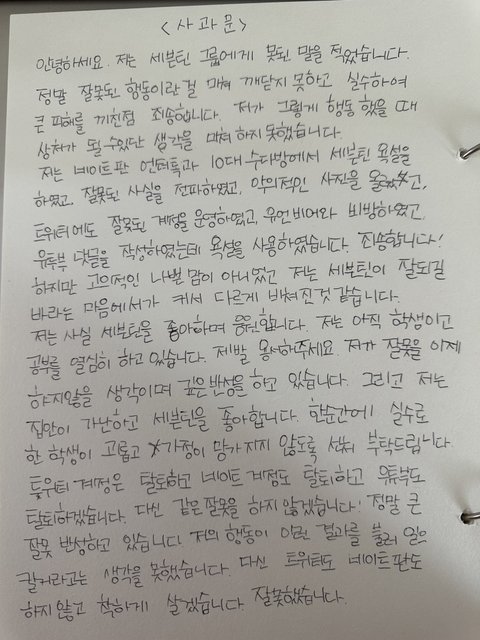 <사과문>
안녕하세요. 저는 세븐틴 그룹에게 못된 말을 적었습니다.
정말 잘못된 행동이란 걸 미쳐 깨닫지 못하고 실수하여
큰 피해를 끼친점 죄송합니다. 저가 그렇게 행동 했을 때
상처가 될 수 있단 생각을 미쳐 하지 못했습니다.
저는 네이트판 엔터톡과 10대 수다방에서 세븐틴 욕설을
하였고, 잘못된 사실을 전파하였고, 악의적인 사진을 올렸고,
트위터에도 잘못된 계정을 운영하였고, 유언비어와 비방하였고,
유튜부 댓글을 작성하였는데 욕설을 사용하였습니다. 죄송합니다!
하지만 고의적인 나쁜 맘이 아니였고 저는 세븐틴이 잘되길
바라는 마음에서가 커서 다르게 비쳐진것 같습니다.
저는 사실 세븐틴을 좋아하며 응원합니다. 저는 아직 학생이고
공부를 열심히 하고 있습니다. 제발 용서해주세요. 저가 잘못을 이제
하지않을 생각이며 깊은 반성을 하고 있습니다. 그리고 저는
집안이 가난하고 세븐틴을 좋아합니다. 한순간에 실수로
한 학생이 괴롭고 가정이 망가지지 않도록 선처 부탁드립니다
트위터 계정은 탈퇴하고 네이트 계정도 탈퇴하고 유튜부도
탈퇴하겠습니다. 다신 같은 잘못을 하지 않겠습니다! 정말 큰
잘못 반성하고 있습니다! 저의 행동이 이런 결과를 불러 일으
킬거라고는 생각을 못했습니다. 다신 트위터도 네이트판도
하지않고 착하게 살겠습니다 잘못했습니다.